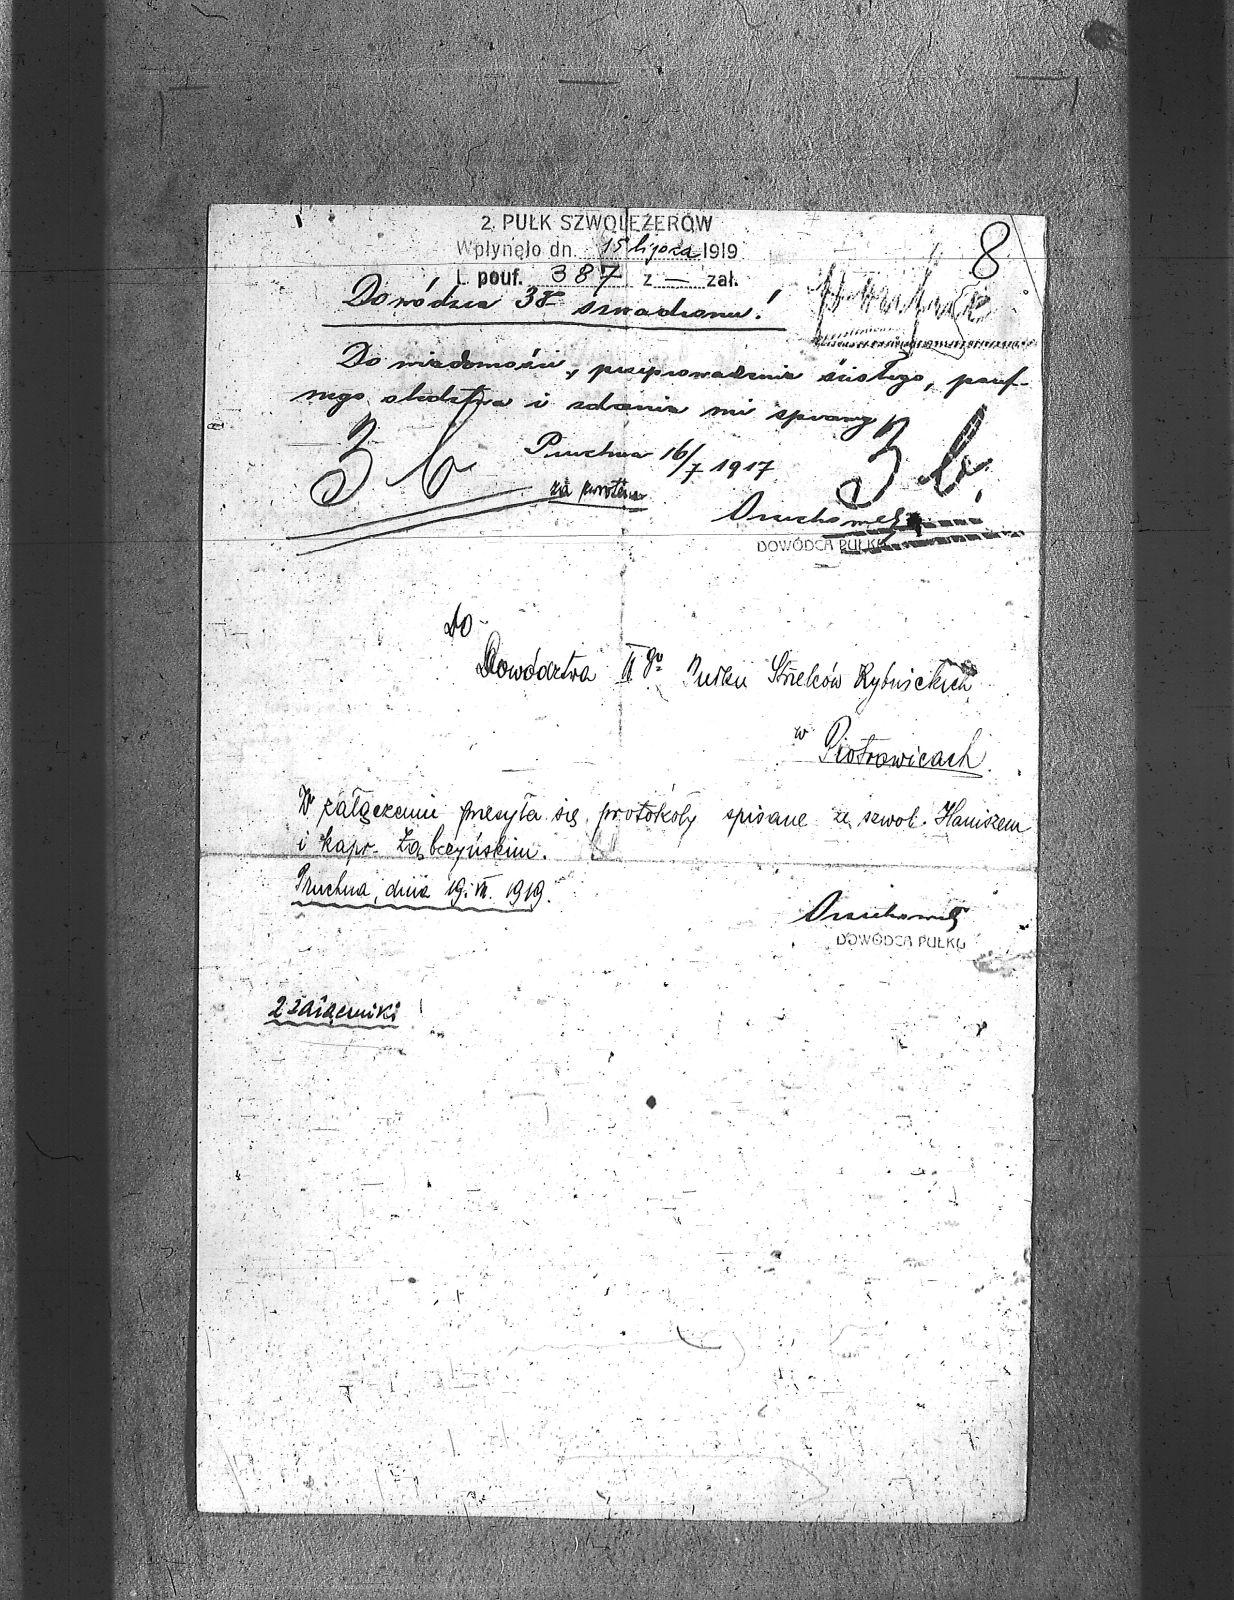 8
2. PUŁK SZWOLEŻERÓW
Wpłynęło dn. 15 lipca 1919
L. pouf. 387 z — zał.
Dowódca 3go szwadronu!
poufne
Do wiadomości, przeprowadzenia ścisłego, pouf-
nego śledztwa i zdania mi sprawy
3 b
Pruchna 16/7 1917
3 b
za zwrotem
DOWÓDCA PUŁKU
Do
Dowództwa II go Pułku Strzelców Bytomskich
w Piotrowicach
W załączeniu przesyła się protokóły spisane ze szwol. Haniszem
i kapr. Ząbczyńskim.
Pruchna, dnia 19. VII. 1919.
DOWÓDCA PUŁKU
2 załączniki!